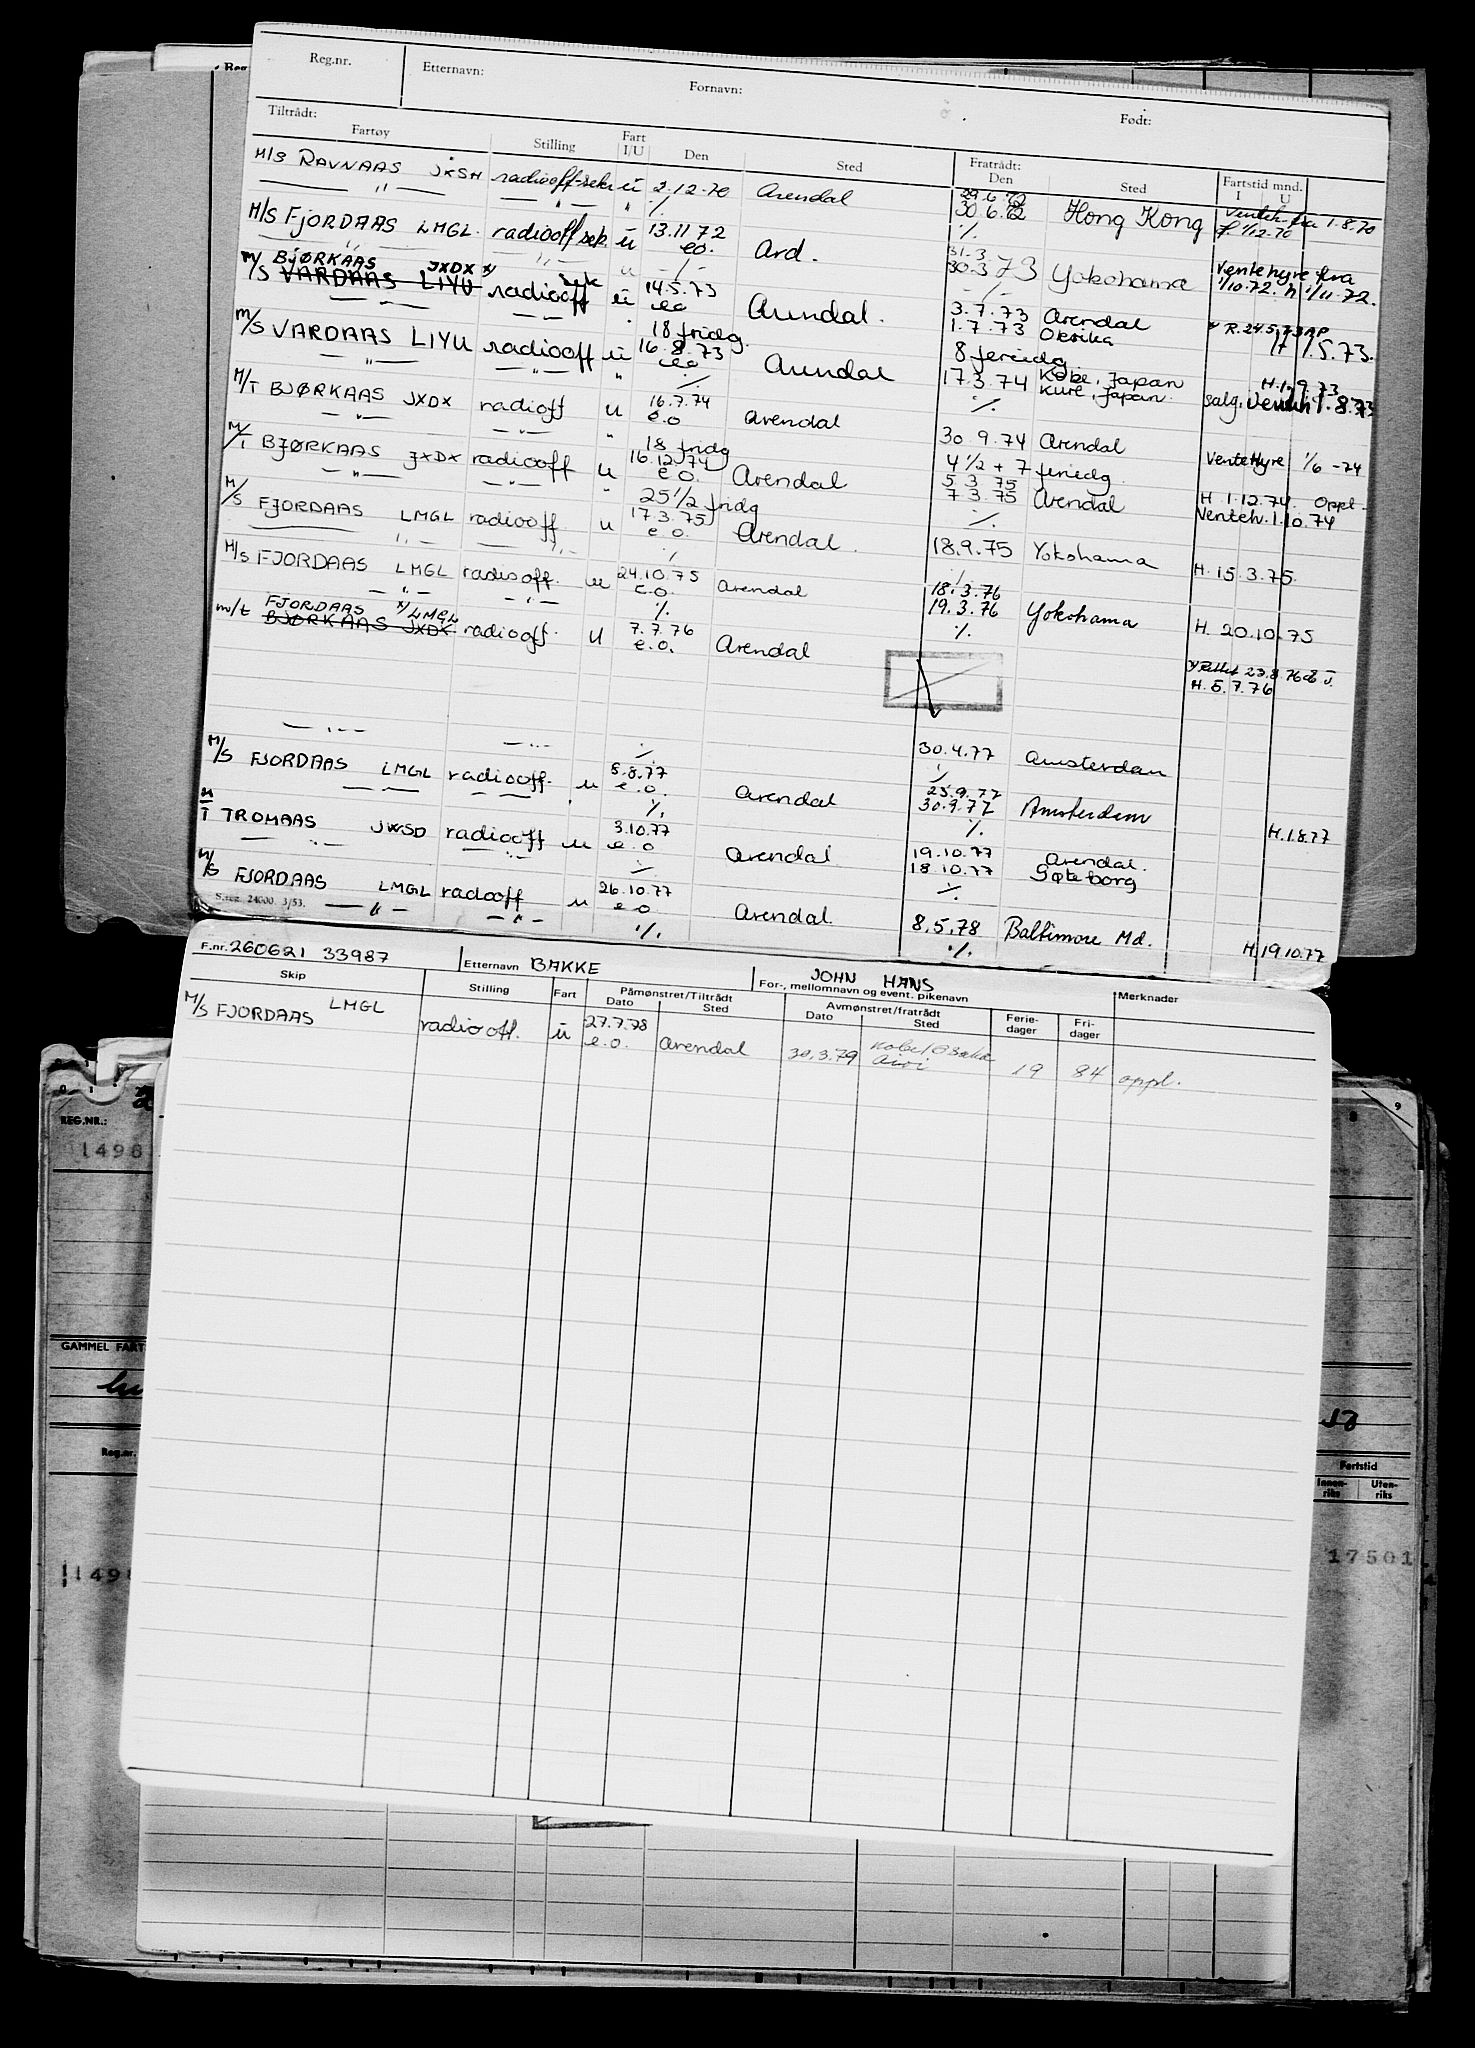 Reg.nr. Etternavn: Fornavn: Født:
Tiltrådt: Fratrådt:
Fartøy Stilling Fart I/U Den Sted Den Sted Fartstid mnd. I U
M/S RAVNAAS JKSH radiooff-sekr u 2.12.70 Arendal 29.6.72 Venteh. fra 1.8.70
— " — — " — " ./. 30.6.72 Hong Kong 1/12.70
M/S FJORDAAS LMGL. radiooff/sek. u 13.11.72 Ard. ./.
— " — — " — u e.o. 31.3
— / — 30.3 73 Yokohama Ventehyre fra 1/10.72. h 1/11.72.
M/ BJØRKAAS JXDX x/
/S VARDAAS LIYU radiooff sek u 14.5.73 Arendal. 3.7.73 Arendal x R.24.5.73 AP
— " — — " — e.o. 1.7.73 Okrika 1.5.73.
18 fridg. 8 feriedg
M/S VARDAAS LIYU radiooff u 16.8.73 Arendal Kobe, Japan H.1.9.73
— " — — " — " e.o. ./. 17.3.74 Kure, Japan. salg. Venteh 1.8.73
M/T BJØRKAAS JXDX radioff u 16.7.74 Arendal ./.
— " — — " — " e.o. 30.9.74 Arendal VenteHyre 1/6 -74
18 fridg 4 1/2 + 7 feriedg.
M/T BJØRKAAS JXDX radiooff u 16.12.74 Arendal 5.3.75 H 1.12.74. Oppl.
— " — — " — " e.o. 7.3.75 Arendal Venteh.1.10.74
25 1/2 fridg
M/S FJORDAAS LMGL radiooff. u 17.3.75 Arendal. ./.
— " — — " — e.o. ./. 18.9.75 Yokohama H. 15.3.75.
M/S FJORDAAS LMGL radiooff. u 24.10.75 Arendal ./.
— " — — " — e.o. ./. 18.3.76
19.3.76 Yokohama H. 20.10.75
FJORDAAS x/LMGL
m/t BJØRKAAS JXDX radiooff. u 7.7.76 Arendal ./.
e.o. x/Rettet 23.8.76
H. 5.7.76
— " — — " — ./. 30.4.77 Amsterdam
M/S FJORDAAS LMGL radiooff. u 5.8.77 Arendal ./.
— " — — " — e.o. ./. 25.9.77
30.9.77 Amsterdam H.1.8.77
M/T TROMAAS JWSD radiooff u 3.10.77 Arendal ./.
— " — — " — e.o. ./. 19.10.77 Arendal.
18.10.77 Gøteborg
M/S FJORDAAS LMGL radooff u 26.10.77 Arendal. ./.
S.reg. 24000. 3/53. — " — — " — e.o. ./. 8.5.78 Baltimore Md. H.19.10.77
./.
F.nr. 260621 33987 Etternavn BAKKE JOHN HANS
For-, mellomnavn og event. pikenavn
Skip Stilling Fart Påmønstret/Tiltrådt Dato Sted Avmønstret/fratrådt Dato Sted Ferie-dager Fri-dager Merknader
M/S FJORDAAS LMGL radiooff. u 27.7.78 e.o. Arendal 30.3.79 Kobe/Osaka Aioi 19 84 oppl.
REG.NR.:
1498
GAMMEL FART
Reg.nr.
1498
8 9
Fartstid
Innen-riks Uten-riks
17501